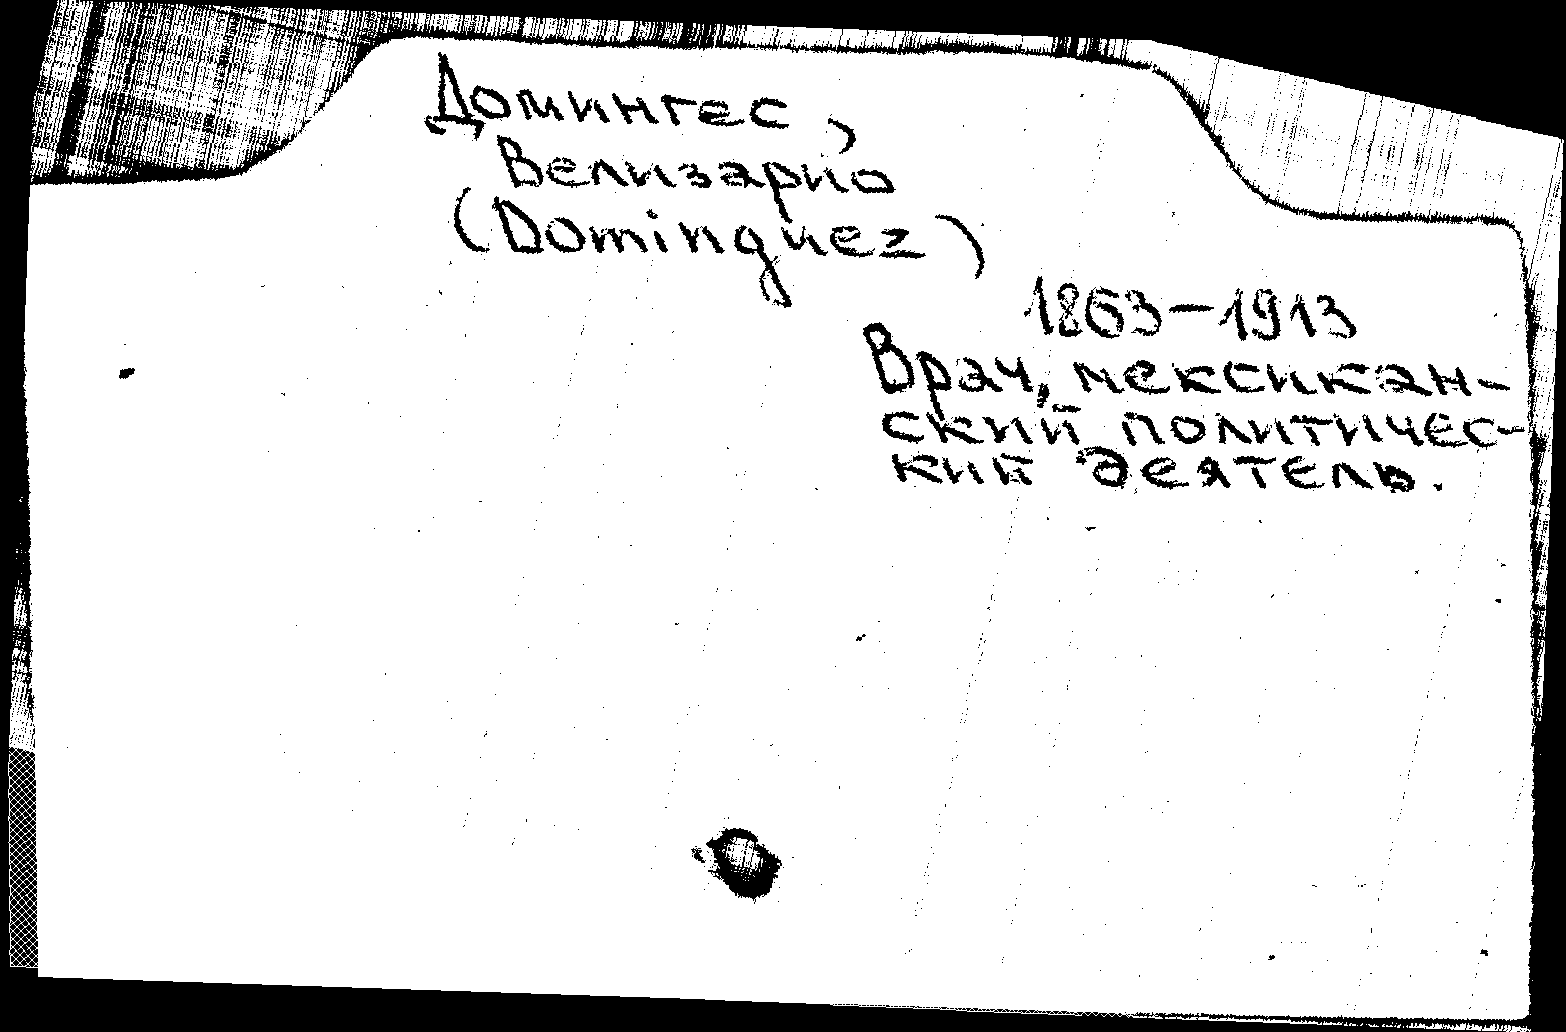 Домингес,
Велизарио
(Dominguez)
1863-1913
Врач, мексикан-
ский политичес-
кий деятель.